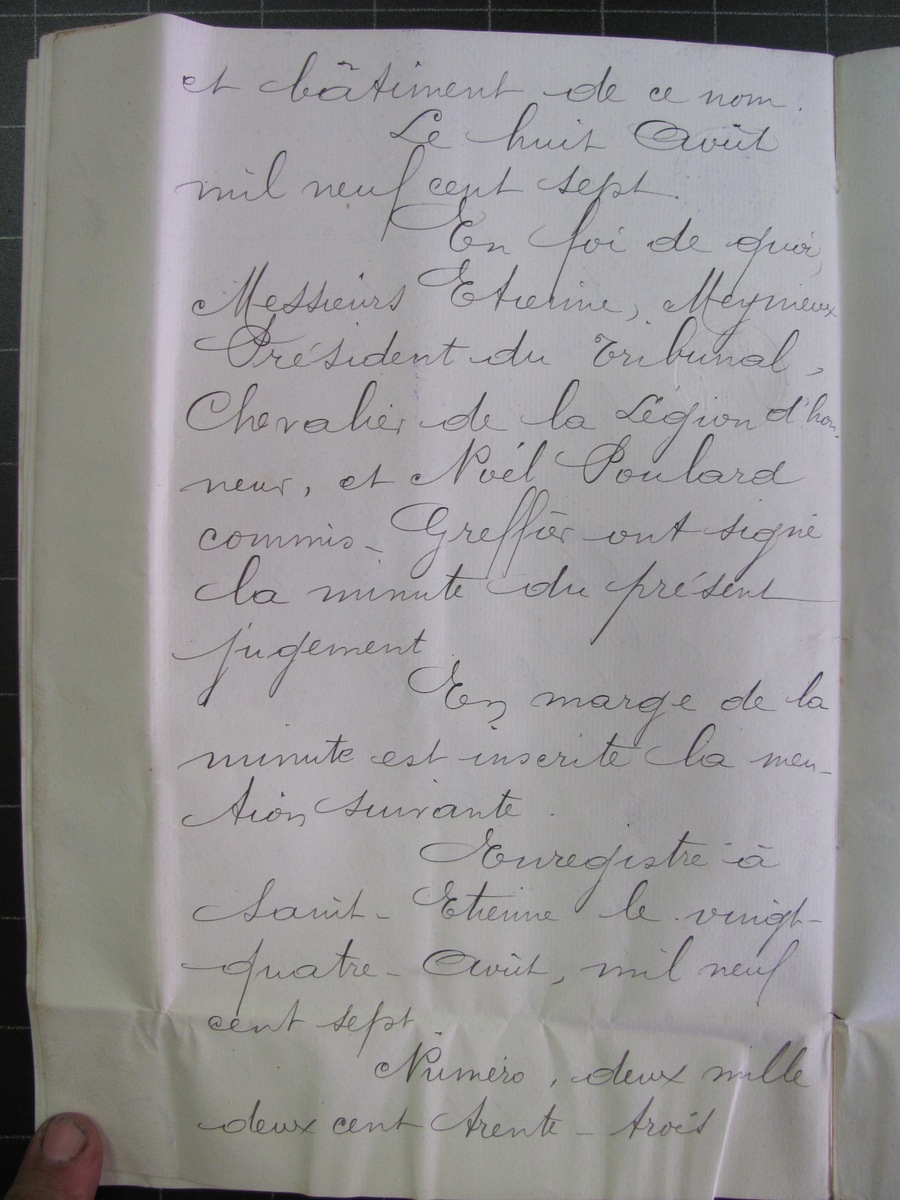 et bâtiment de ce nom.
Le huit Août
mil neuf cent sept.
En foi de quoi,
Messieurs Etienne, Meynieux
Président du Tribunal,
Chevalier de la Légion d'hon-
neur, et Noël Poulard
commis-Greffier ont signé
la minute du présent
jugement.
En marge de la
minute est inscrite la men-
tion suivante.
Enregistré à
Saint-Etienne le vingt-
quatre-Août, mil neuf
cent sept.
Numéro, deux mille
deux cent trente-trois